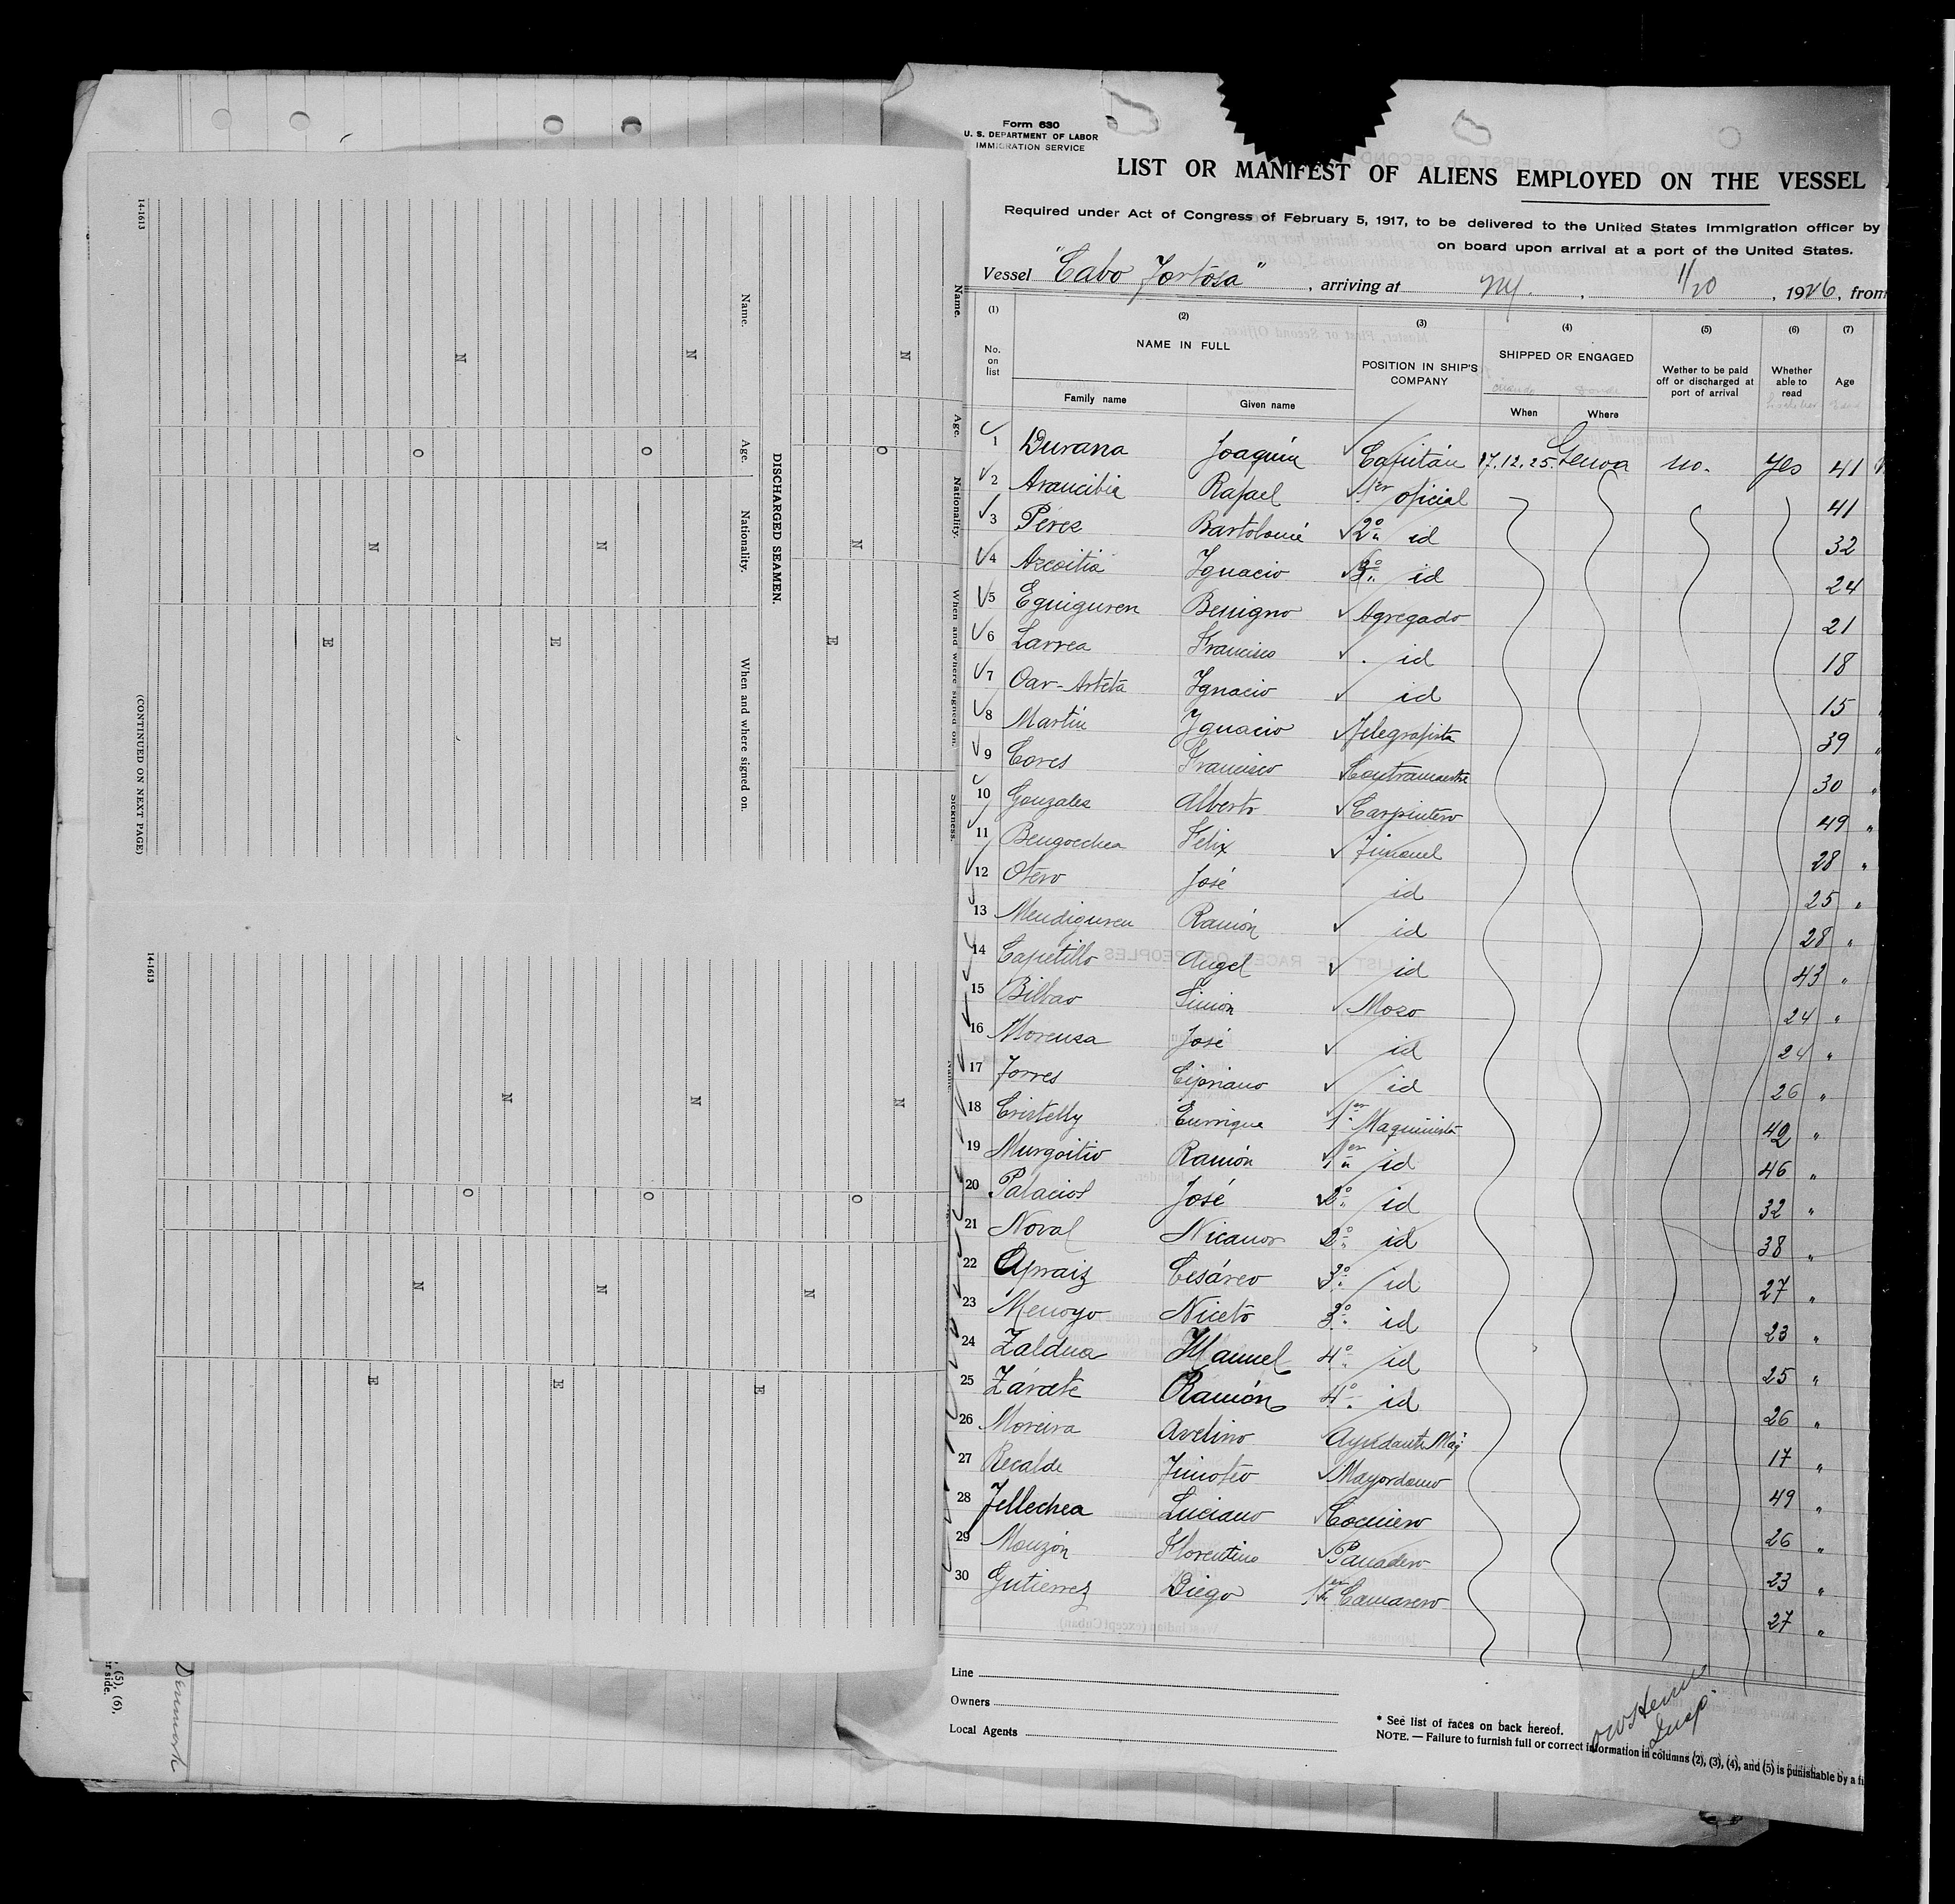 Form 630
U. S. DEPARTMENT OF LABOR
IMMIGRATION SERVICE
LIST OR MANIFEST OF ALIENS EMPLOYED ON THE VESSEL
Required under Act of Congress of February 5, 1917, to be delivered to the United States immigration officer by
on board upon arrival at a port of the United States.
Vessel "Cabo Tortosa", arriving at NY., 1/20, 1926, from
(1) (2) (3) (4) (5) (6) (7)
No. on list NAME IN FULL POSITION IN SHIP'S COMPANY SHIPPED OR ENGAGED Wether to be paid off or discharged at port of arrival Whether able to read Age
Family name Given name When Where
1 Durana Joaquín Capitán 17.12.25. Genoa no. yes 41
2 Araucibia Rafael 1er oficial 41
3 Pérez Bartolomé 2º id 32
4 Azcoitia Ignacio 3º id 24
5 Eguiguren Benigno Agregado 21
6 Larrea Francisco id 18
7 Oar-Arteta Ignacio id 15
8 Martín Ignacio Telegrafista 39 "
9 Cores Francisco Contramaestre 30 "
10 Gonzalez Alberto Carpintero 49 "
11 Bengoechea Felix Timonel 28 "
12 Otero José id 25 "
13 Mendiguren Ramón id 28 "
14 Capetillo Angel id 43 "
15 Bilbao Simón Mozo 24 "
16 Morensa José id 24 "
17 Torres Cipriano id 26 "
18 Cristelly Enrrique 1er Maquinista 42 "
19 Murgoitio Ramón 1er id 46 "
20 Palacios José 2º id 32 "
21 Noval Nicanor 2º id 38 "
22 Apraiz Cesáreo 3º id 27 "
23 Menoyo Niceto 3º id 23 "
24 Zaldua Manuel 4º id 25 "
25 Zárate Ramón 4º id 26 "
26 Moreira Avelino Ayudante Maq. 17 "
27 Recalde Timoteo Mayordomo 49 "
28 Tellechea Luciano Cocinero 26 "
29 Monzón Florentino Panadero 23 "
30 Gutierrez Diego 1er Camarero 27 "
Line
Owners
Local Agents
* See list of races on back hereof.
NOTE. — Failure to furnish full or correct information in columns (2), (3), (4), and (5) is punishable by a
Insp.
14-1613
Name. Age. Nationality. When and where signed on. Sickness.
N O N E
DISCHARGED SEAMEN.
Name. Age. Nationality. When and where signed on.
N O N E
N O N E
(CONTINUED ON NEXT PAGE)
14-1613
N O N E
N O N E
N O N E
(5), (6),
side.
Denmark